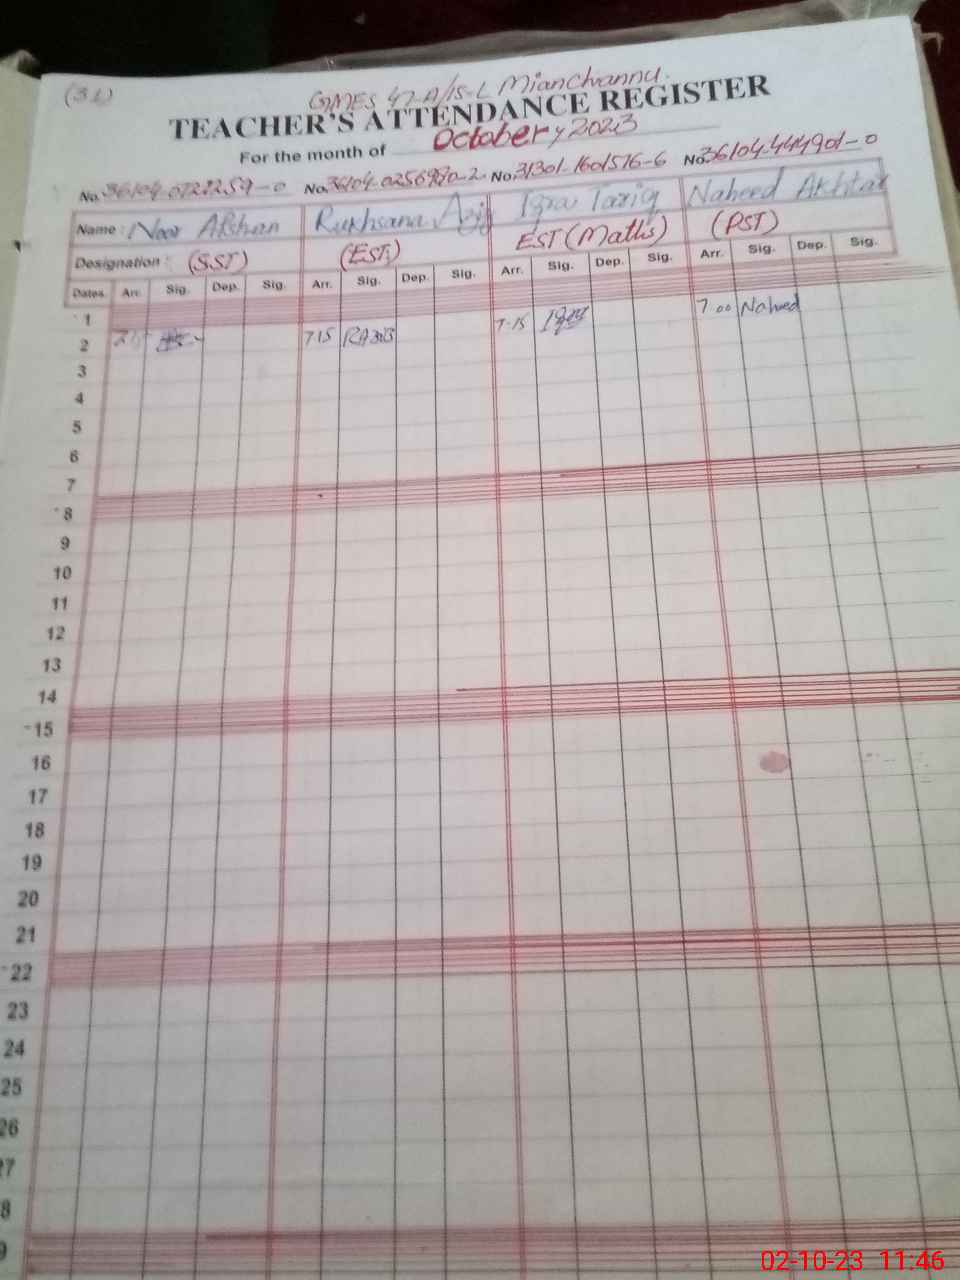 (31)
GMES 47-A/15-L Mianchannu.
TEACHER'S ATTENDANCE REGISTER
For the month of October, 2023
No. 36104-0722259-0 No. 36104-0256990-2 No. 31301-1601516-6 No. 36104-444901-0
Name: Noor Afshan Rukhsana Aziz Iqra Tariq Naheed Akhtar
Designation: (SST) (EST) EST (Maths) (PST)
Dates. Arr. Sig. Dep. Sig. Arr. Sig. Dep. Sig. Arr. Sig. Dep. Sig. Arr. Sig. Dep. Sig.
1
2 7 15 7-15 7 00 Naheed
3
4
5
6
7
8
9
10
11
12
13
14
15
16
17
18
19
20
21
22
23
24
25
26
7
8
9
02-10-23 11:46